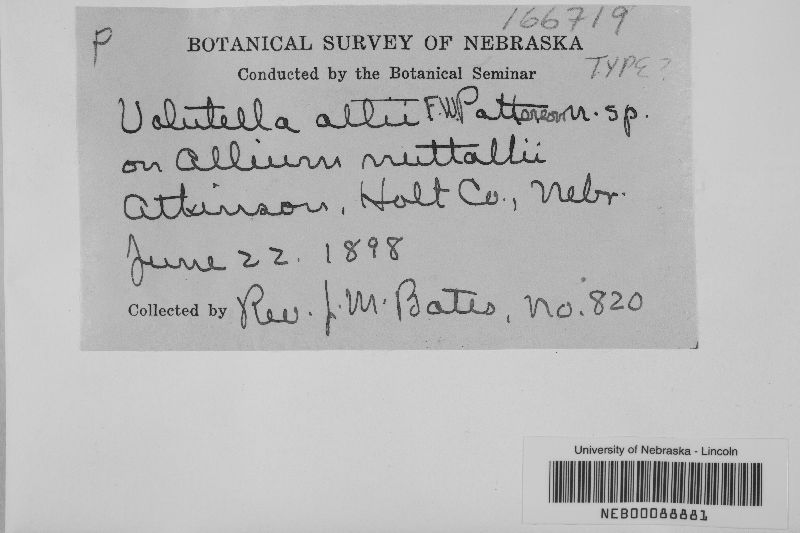 166719
P
BOTANICAL SURVEY OF NEBRASKA
TYPE?
Conducted by the Botanical Seminar
Volutella allii F.W. Patterson n. sp.
on Allium nuttallii
Atkinson, Holt Co., Nebr.
June 22. 1898
Collected by Rev. J. M. Bates, No. 820
University of Nebraska - Lincoln
NEB00088881